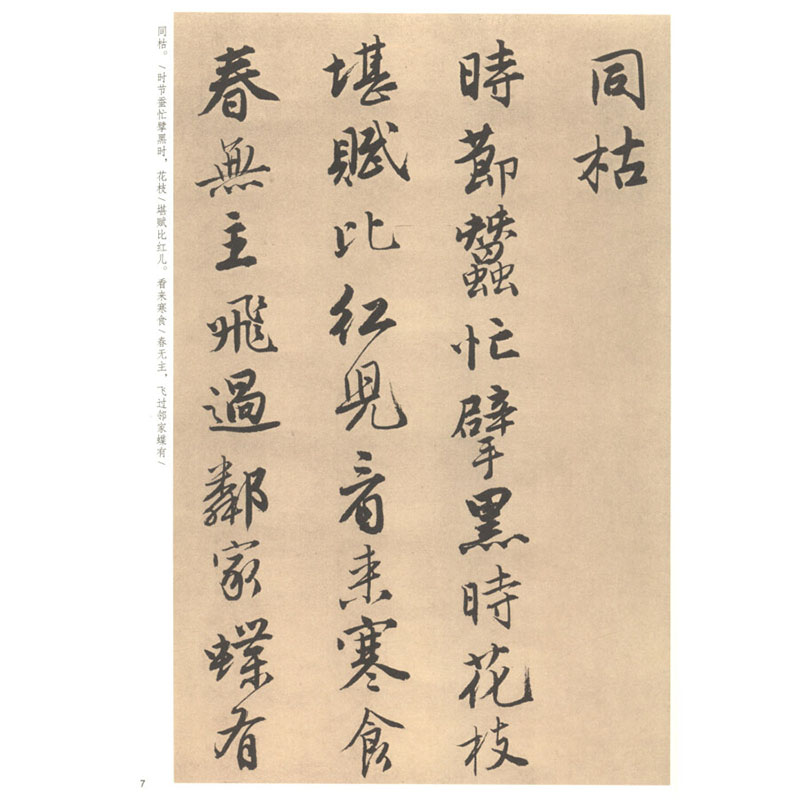 同枯
時節蠶忙擘黑時花枝
堪賦比紅兒看来寒食
春無主飛過鄰家蝶有
同枯。\时节蚕忙擘黑时，花枝\堪赋比红儿。看来寒食\春无主，飞过邻家蝶有\
7